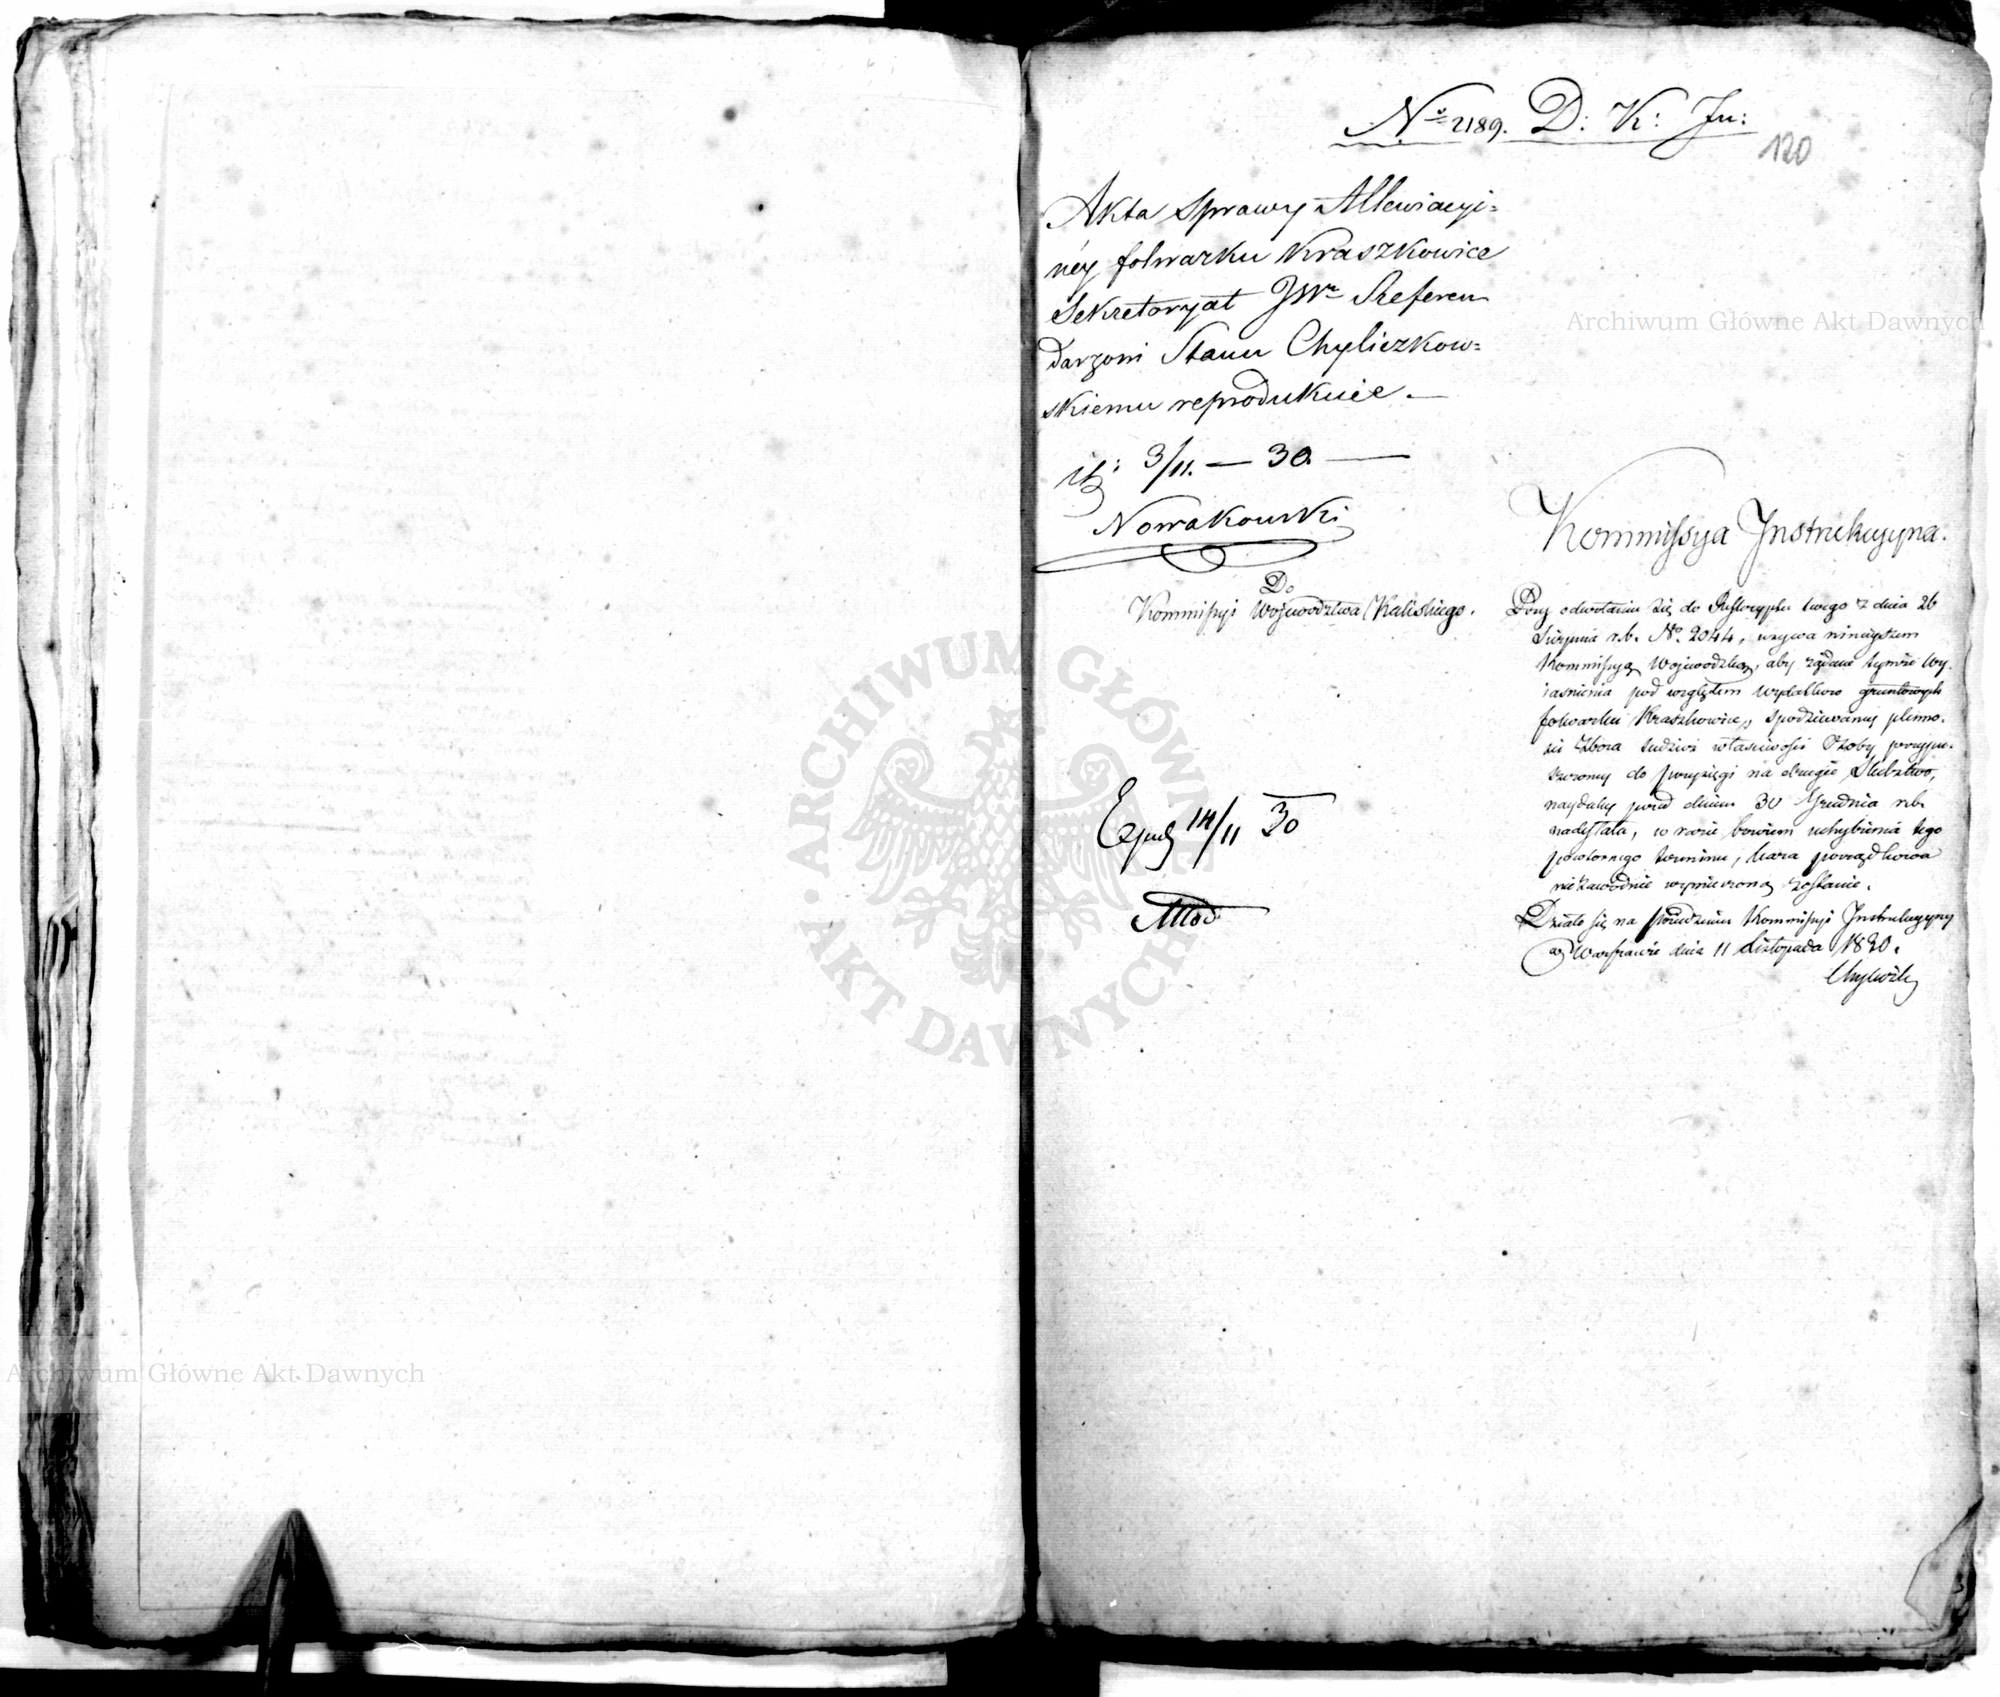 No 2189. D: K: In:
120
Akta sprawy Allewiacyi=
néy folwarku Kraszkowice
Sekretaryat JWu Referen
darzowi Stanu Chyliczkow=
skiemu reprodukuie.—
3/11.—30.—
Nowakowski
Do
Kommissyi Województwa Kaliskiego.
Exped 14/11 30
Kommissya Instrukcyyna.
Przy odwołaniu się do Reskryptu swego z dnia 26
Sierpnia r.b. No. 2044, wzywa ninieyszem
Kommissyą Wojewódzką, aby żądane tymże wy-
iaśnienia pod względem wydatków gruntowych
folwarku Kraszkowice, spodziewaney plenno-
ści zboża tudzież właściwości Osoby przypu-
szczoney do przysięgi na drugie Śledztwo,
naydaley przed dniem 30 Grudnia r.b.
nadesłała, w razie bowiem uchybienia tego
powtornego terminu, kara porządkowa
niezawodnie wymierzoną zostanie.
Działo się na posiedzeniu Kommissyi Instrukcyyney
w Warszawie dnia 11 Listopada 1830.
Archiwum Główne Akt Dawnych
Archiwum Główne Akt Dawnych
ARCHIWUM GŁÓWNE AKT DAWNYCH